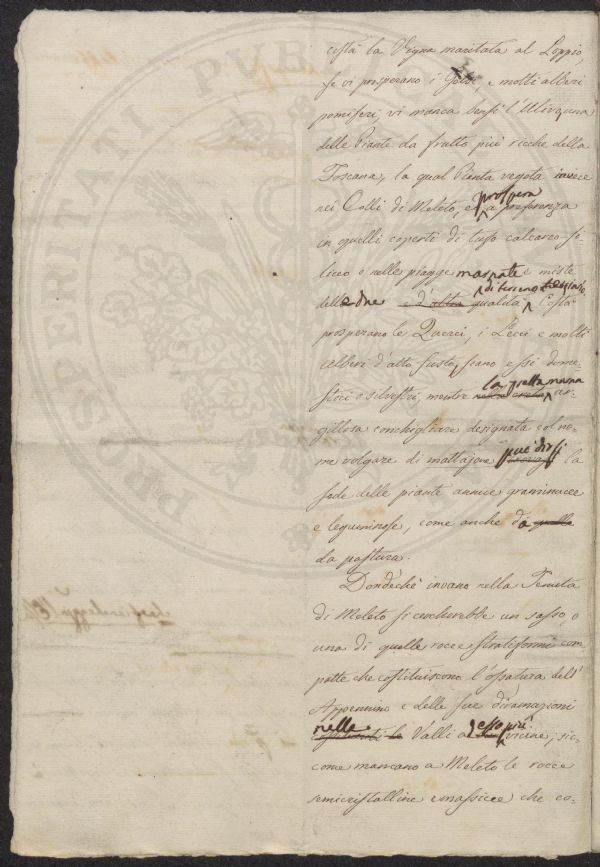 costà la Vigna maritata al Loppio,
se vi prosperano i Gelsi, e molti alberi
pomiferi, vi manca bensì l'Ulivo, una
delle Piante da frutto più ricche della
Toscana, la qual Pianta vegeta invece
nei Colli di Meleto, e prospera a preferenza
in quelli coperti di tufo calcareo-si-
liceo o nelle piagge marnate e miste
delle due e d'altra qualità di terreno Costà
prosperano le Querci, i Lecci e molti
alberi d'alto fusto, sieno essi dome-
stici o silvestri, mentre la pretta marna ar-
gillosa conchigliare designata col no-
me volgare di mattajone può dirsi la
sede delle piante annue graminacee
e leguminose, come anche da quelle
da pastura.
Dondechè invano nella Tenuta
di Meleto si cercherebbe un sasso, o
una di quelle rocce stratiformi com
patte che costituiscono l'ossatura dell'
Appennino e delle sue diramazioni
nelle Valli ad esso più vicine; sic-
come mancano a Meleto le rocce
semicristalline e massicce che co-